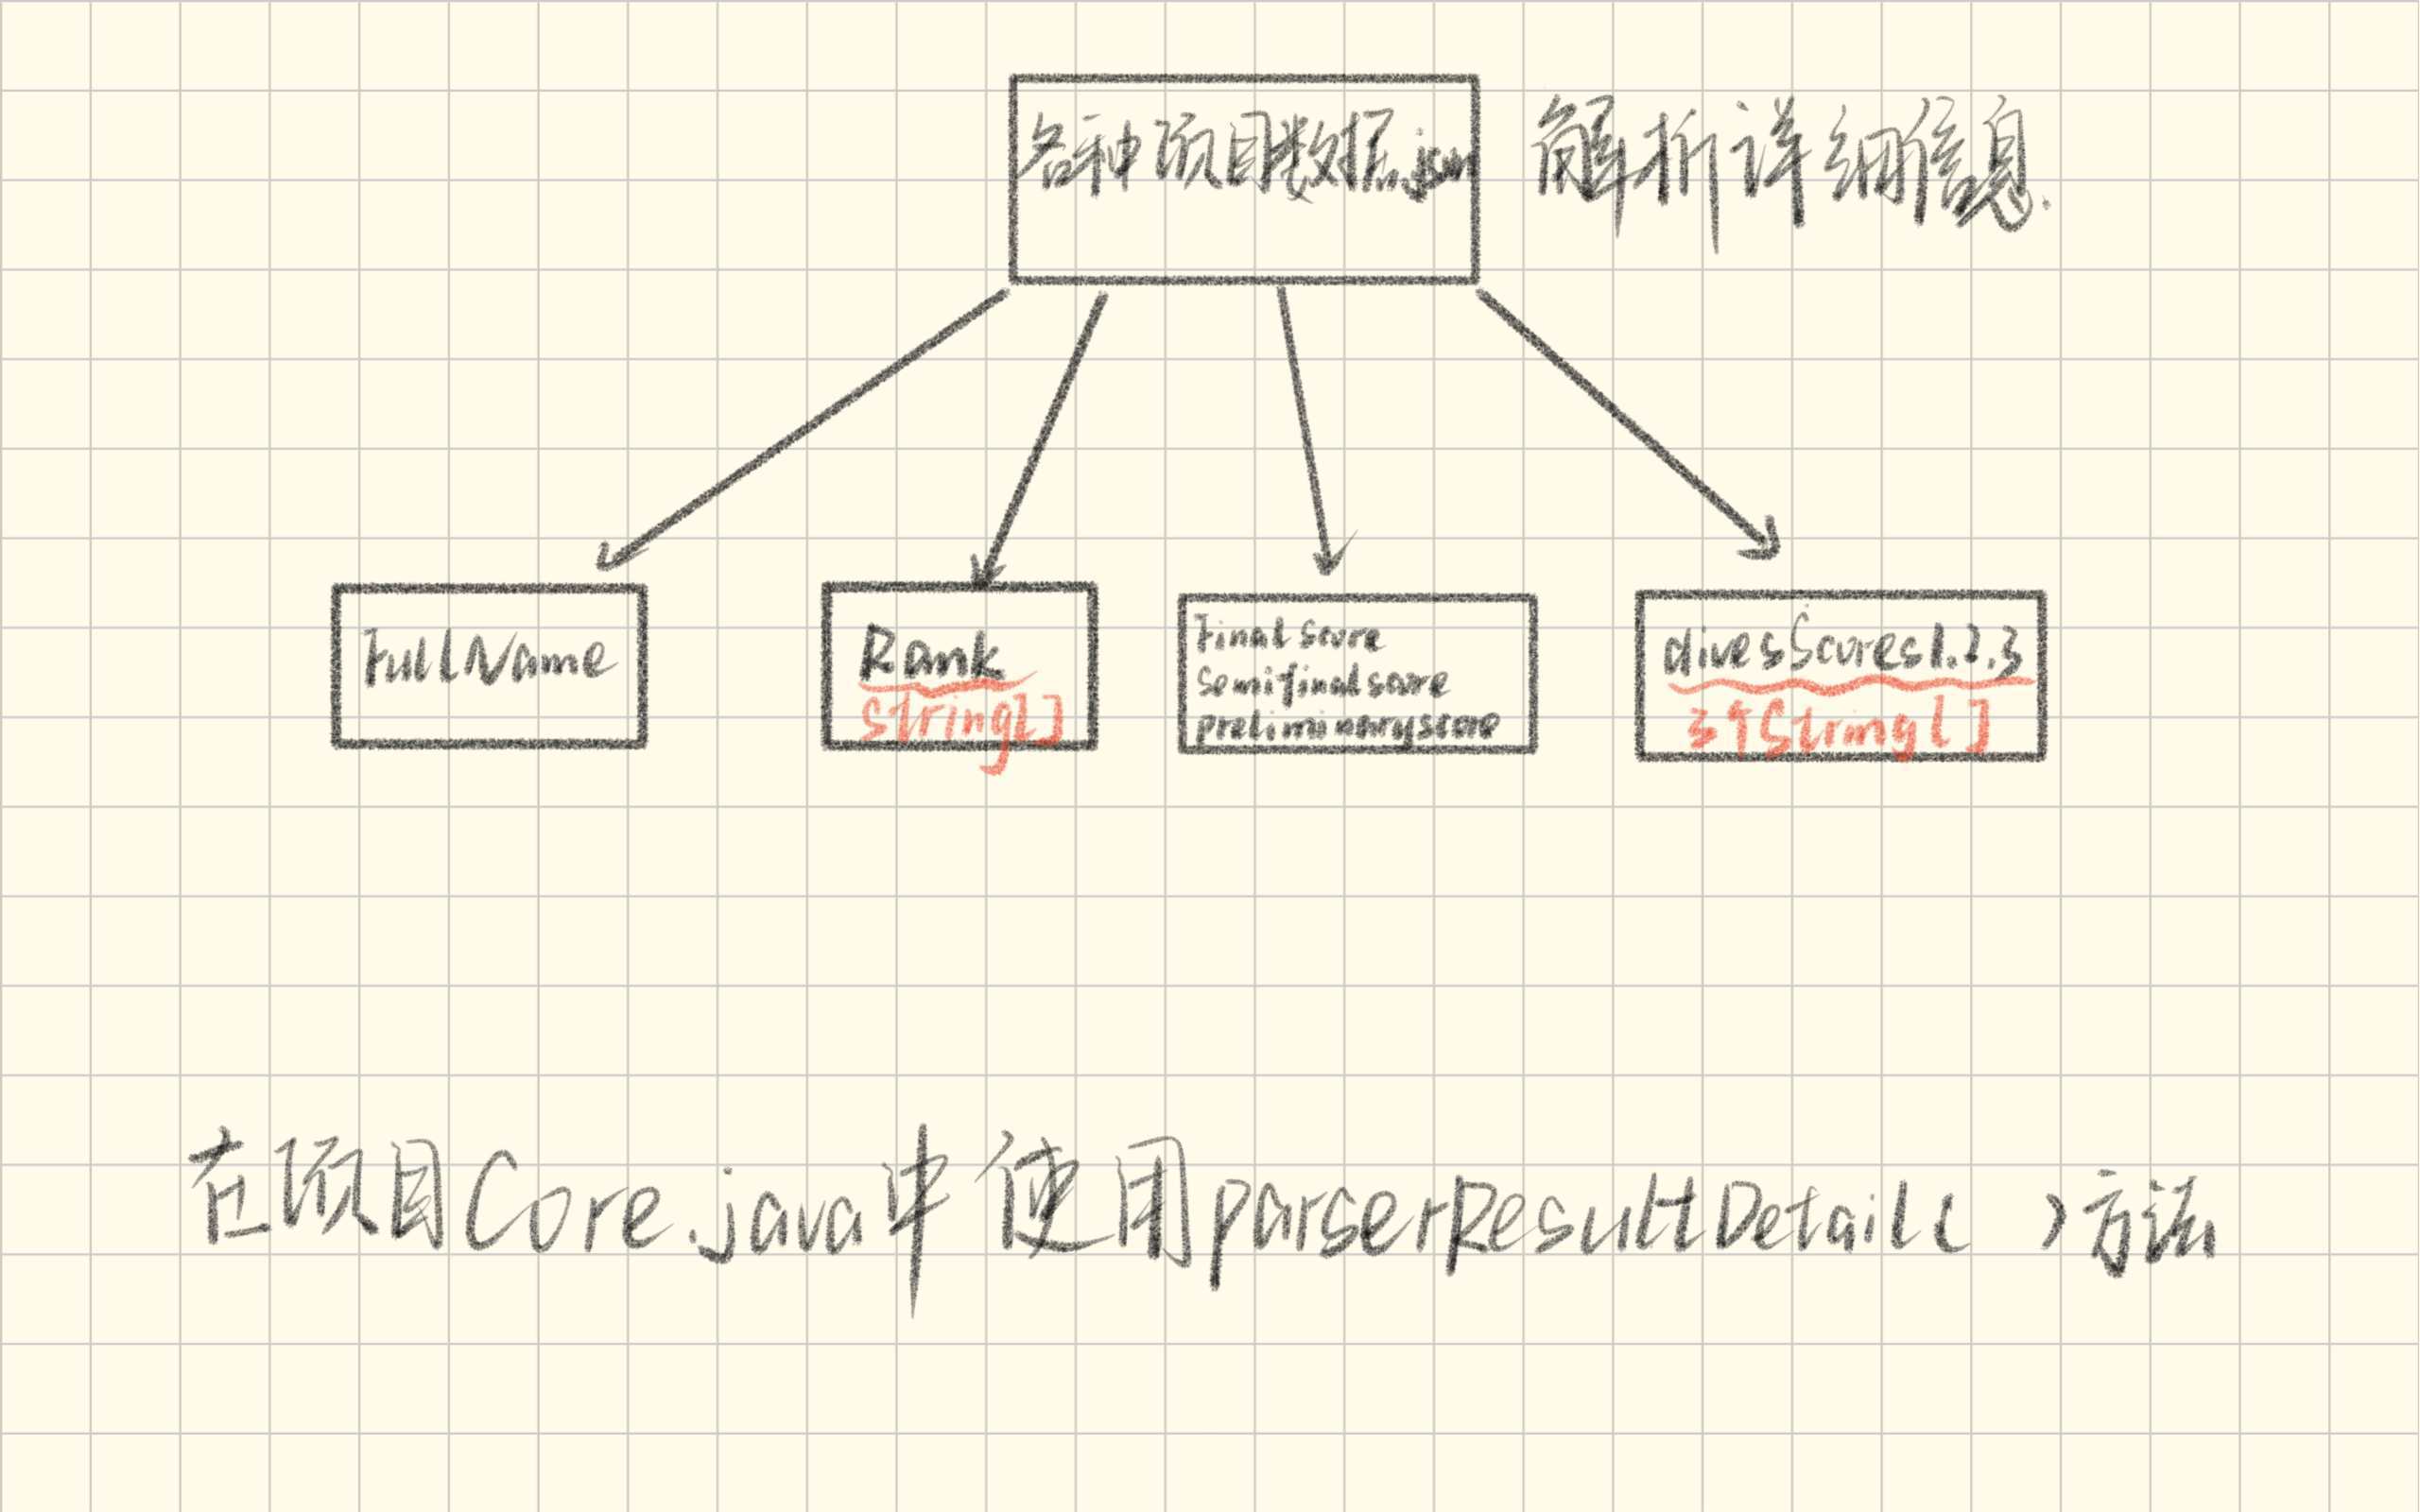 各种项目数据.json
解析详细信息.
FullName
Rank
String[]
Final score
Semifinalscore
preliminaryscore
divesScores1.2.3
3个String[]
在项目Core.java中使用parserResultDetail( )方法